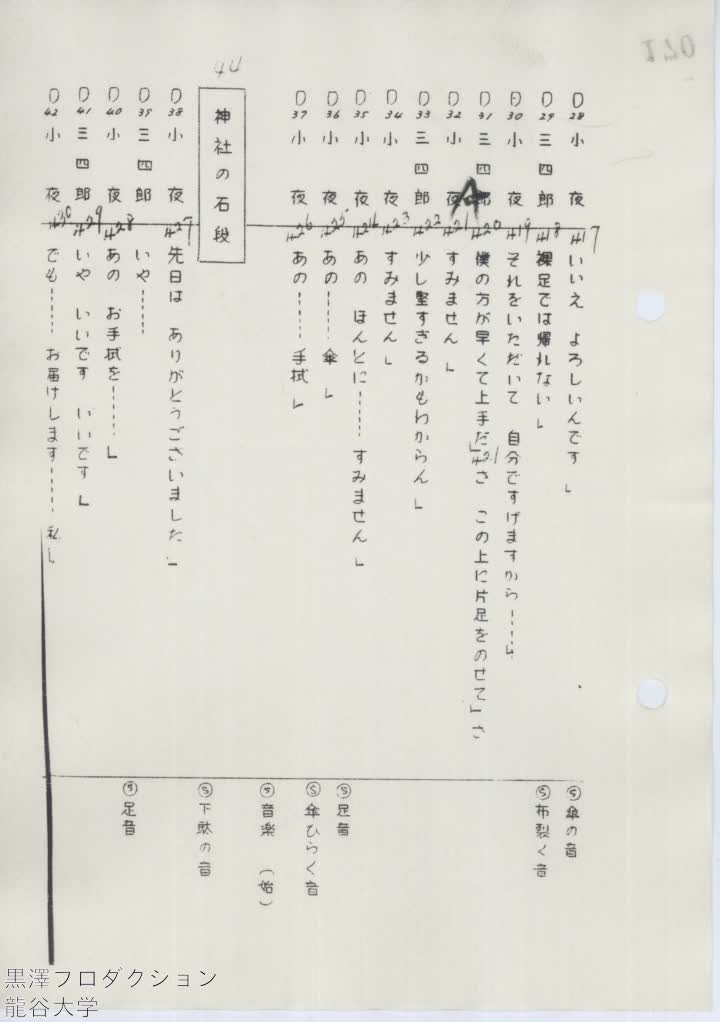 D28 小夜 #17 いいえ よろしいんです」
D29 三四郎 #18 裸足では帰れない」
D30 小夜 #19 それをいただいて 自分ですげますから……」
D31 三四郎 #20 僕の方が早くて上手だ」#21 さ この上に片足をのせて」さ
D32 小夜 #21 すみません」
D33 三四郎 #22 少し堅すぎるかもわからん」
D34 小夜 #23 すみません」
D35 小夜 #24 あの ほんとに…… すみません」
D36 小夜 #25 あの…… 傘」
D37 小夜 #26 あの…… 手拭」
44
神社の石段
D38 小夜 #27 先日は ありがとうございました」
D39 三四郎 いや……
D40 小夜 #28 あの お手拭を……」
D41 三四郎 #29 いや いいです いいです」
D42 小夜 #30 でも…… お届けします…… 私」
Ⓢ傘の音
Ⓢ布裂く音
Ⓢ足音
Ⓢ傘ひらく音
Ⓢ音楽 (始)
Ⓢ下駄の音
Ⓢ足音
黒澤プロダクション
龍谷大学